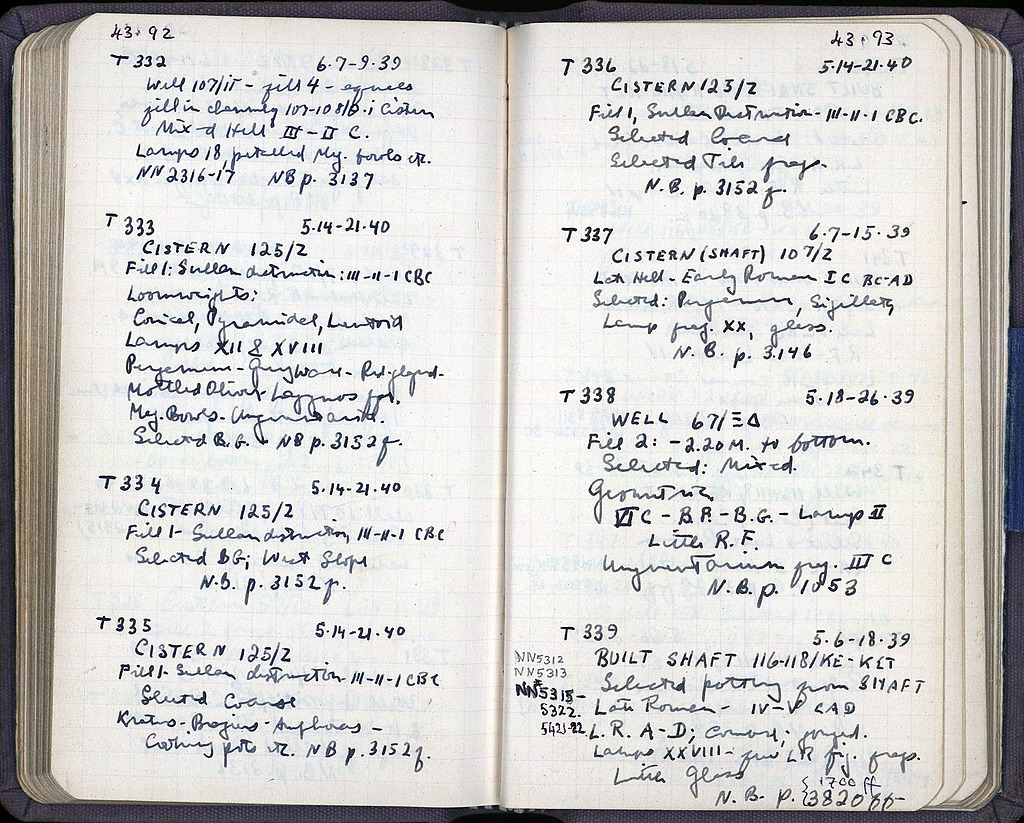 43·92
T 332 6·7-9·39
Well 107/ΙΓ - fill 4 - equals
fill in cleaning 107-108/ Cistern
Mix-d Hell III-II C.
Lamps 18, petalled Meg. bowls etc.
NN 2316-17 NB p. 3137
T 333 5·14-21·40
CISTERN 125/2
Fill 1: Sullan destruction: III-II-I C BC
Loomweights:
Conical, Pyramidal, Lentoid
Lamps XII & XVIII
Pergamum - Grayware - Red-glazed-
Mottled Lagynos
Meg. Bowls - Unguentaria.
Selected B.G. NB p. 3152 f.
T 334 5·14-21·40
CISTERN 125/2
Fill 1- Sullan destruction, III-II-I C BC
Selected BG; West Slope
N.B. p. 3152 f.
T 335 5·14-21·40
CISTERN 125/2
Fill 1- Sullan destruction - III-II-I C BC
Selected Coarse
Krater - Braziers - Amphoras -
Cooking pots etc. NB p. 3152 f.
43·93
T 336 5·14-21·40
CISTERN 125/2
Fill 1, Sullan Destruction - III-II-I C BC.
Selected Coarse
Selected Tile frags.
N.B. p. 3152 f.
T 337 6·7-15·39
CISTERN (SHAFT) 107/2
Late Hell - Early Roman I C BC-AD
Selected: Pergamum, Sigillata,
Lamp frag. XX, glass.
N.B. p. 3146
T 338 5·18-26·39
WELL 67/ΞΔ
Fill 2: -2.20 M. to bottom.
Selected: Mixed.
Geometric
VI C - B.F. - B.G. - Lamp II
Little R.F.
Unguentarium frag. III C
N.B. p. 1053
T 339 5·6-18·39
NN5312
NN5313
NN5315-
5322
5421-22
BUILT SHAFT 116-118/ΚΕ-ΚΣΤ
Selected pottery from SHAFT
Late Roman - IV-V C AD
L.R. A-D; Coarse;
Lamps XXVIII - LR fig. frags.
Little Glass
1700 ff
N.B. p. 3820 ff-